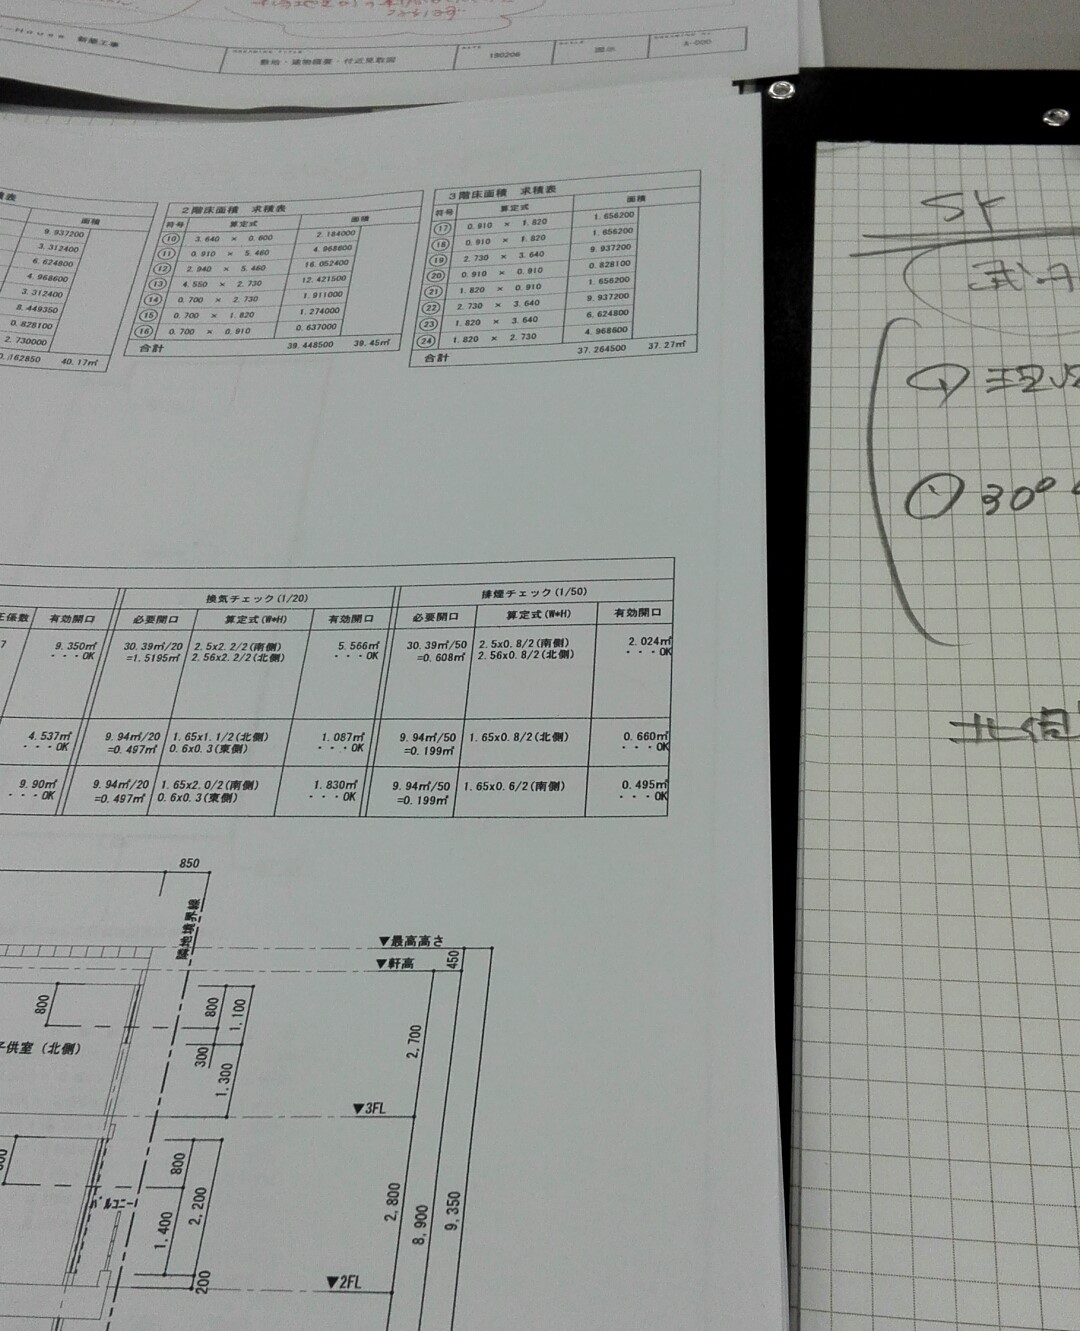 新築工事
DRAWING TITLE
敷地・建物積善・付近見取図
DATE
180206
SCALE
図示
A-000
面積
9.937200
3.312400
6.624800
4.968600
3.312400
8.449350
0.828100
2.730000
.162850 40.17㎡
2階床面積 求積表
符号 算定式 面積
⑩ 3.640 × 0.600 2.184000
⑪ 0.910 × 5.460 4.968600
⑫ 2.940 × 5.460 16.052400
⑬ 4.550 × 2.730 12.421500
⑭ 0.700 × 2.730 1.911000
⑮ 0.700 × 1.820 1.274000
⑯ 0.700 × 0.910 0.637000
合計 39.448500 39.45㎡
3階床面積 求積表
符号 算定式 面積
⑰ 0.910 × 1.820 1.656200
⑱ 0.910 × 1.820 1.656200
⑲ 2.730 × 3.640 9.937200
⑳ 0.910 × 0.910 0.828100
㉑ 1.820 × 0.910 1.656200
㉒ 2.730 × 3.640 9.937200
㉓ 1.820 × 3.640 6.624800
㉔ 1.820 × 2.730 4.968600
合計 37.264500 37.27㎡
換気チェック(1/20) 排煙チェック(1/50)
正係数 有効開口 必要開口 算定式(W*H) 有効開口 必要開口 算定式(W*H) 有効開口
7 9.350㎡ 30.39㎡/20 2.5x2.2/2(南側) 5.566㎡ 30.39㎡/50 2.5x0.8/2(南側) 2.024㎡
・・・OK =1.5195㎡ 2.56x2.2/2(北側) ・・・OK =0.608㎡ 2.56x0.8/2(北側) ・・・OK
4.537㎡ 9.94㎡/20 1.65x1.1/2(北側) 1.087㎡ 9.94㎡/50 1.65x0.8/2(北側) 0.660㎡
・・・OK =0.497㎡ 0.6x0.3(東側) ・・・OK =0.199㎡ ・・・OK
9.90㎡ 9.94㎡/20 1.65x2.0/2(南側) 1.830㎡ 9.94㎡/50 1.65x0.6/2(南側) 0.495㎡
・・・OK =0.497㎡ 0.6x0.3(東側) ・・・OK =0.199㎡ ・・・OK
850
隣地境界線
▼最高高さ
▼軒高
450
800
800
1,100
300
1,300
2,700
子供室(北側)
▼3FL
800
2,200
1,400
200
バルコニー
2,800
8,900
9,350
▼2FL
30°
北側